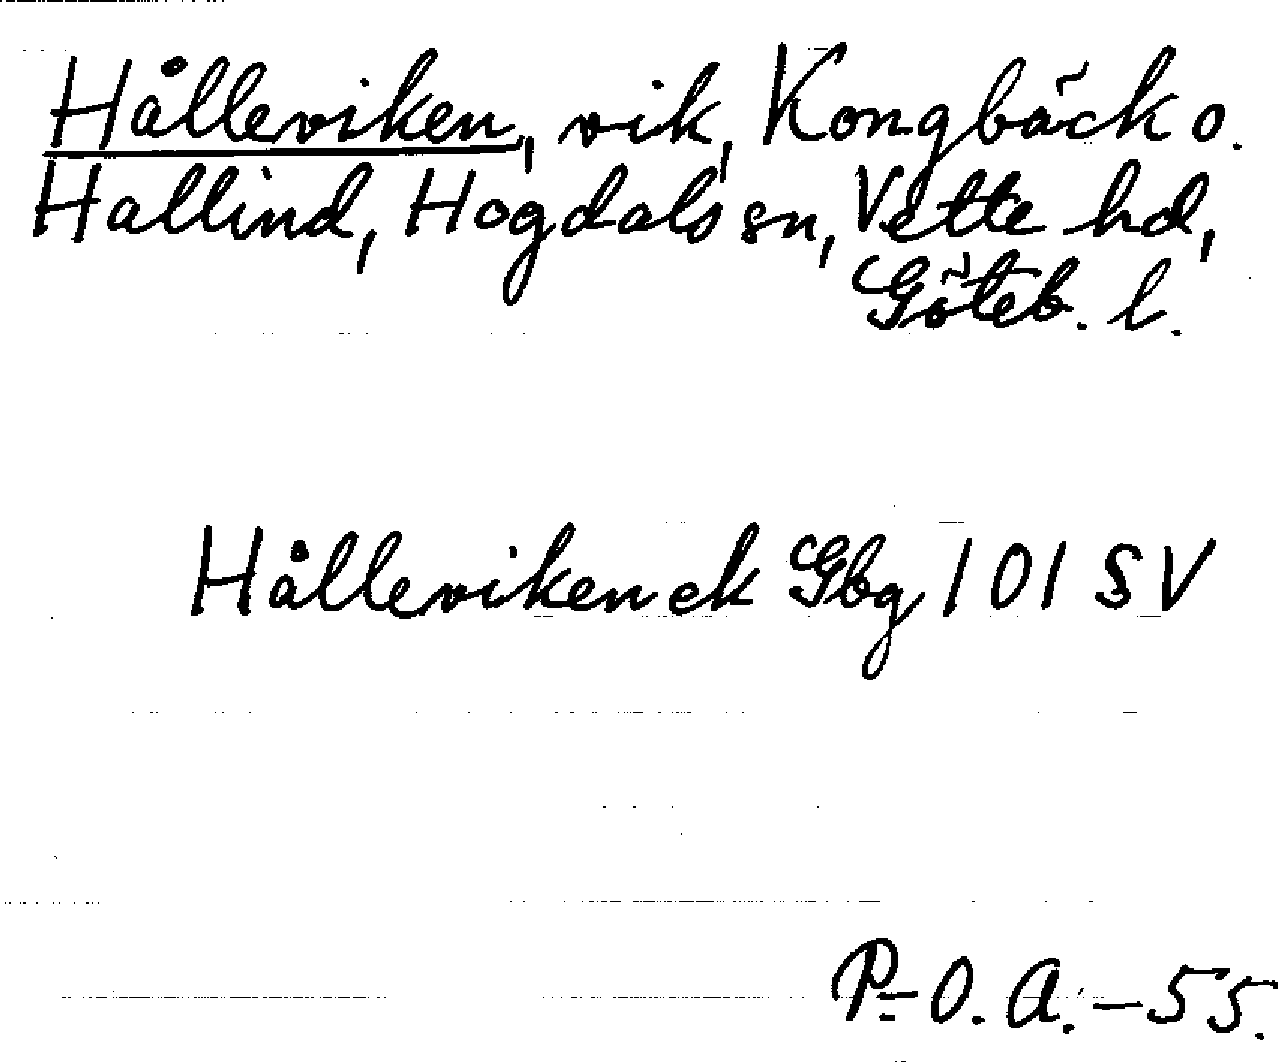 Hålleviken, vik, Kongbäck o.
Hallind, Hogdals sn, Vette hd,
Göteb. l.
Hålleviken ek Gbg 101 SV
P.-O. A. -55.